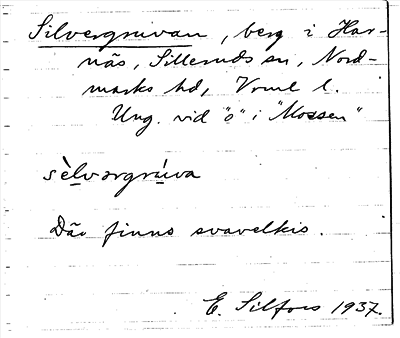 Silvergruvan, berg i Har-
näs, Silleruds sn, Nord-
marks hd, Vrml l.
Ung. vid "o" i "Mossen"
sèlvərgrúva
Där finns svavelkis.
E. Silfors 1937.